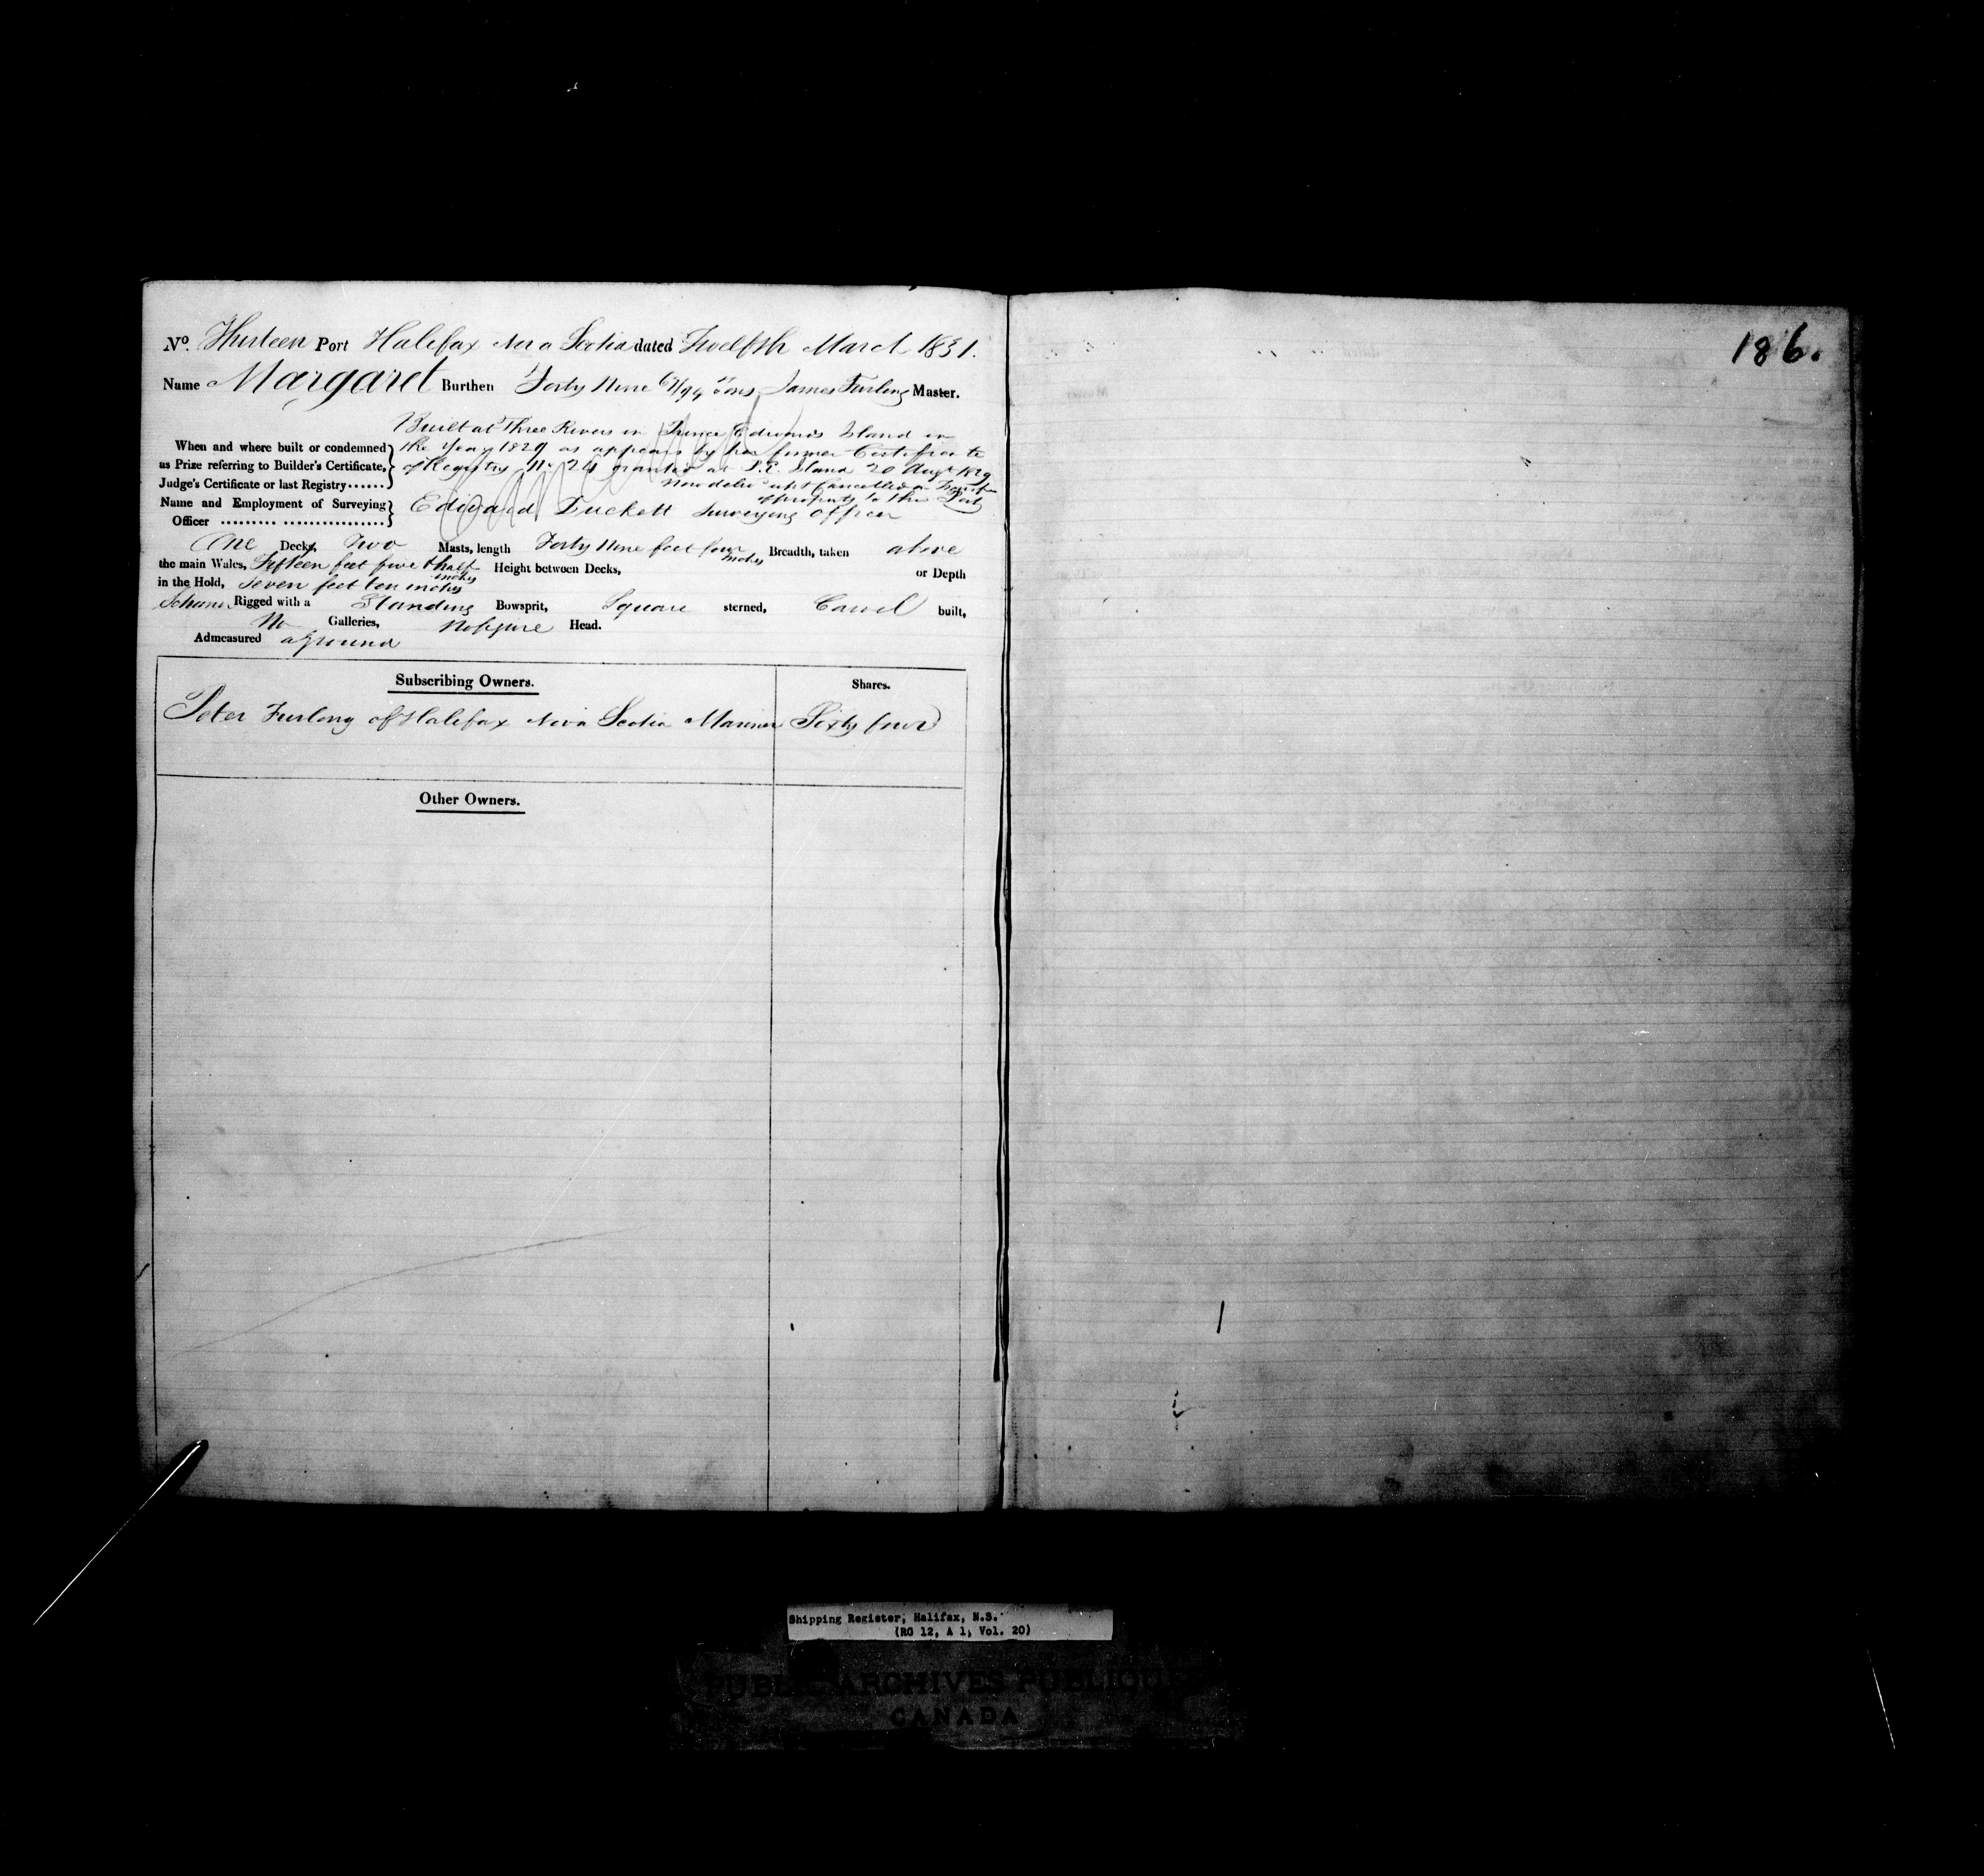 No. Thirteen Port Halifax Nova Scotia dated Twelfth March 1831.
Name Margaret Burthen Forty Nine /94 Tons James Furlong Master.
Built at Three Rivers in Prince Edwards Island in
When and where built or condemned the Year 1829 as appears by her former Certificate
as Prize referring to Builder's Certificate, of Registry No 24 granted at P.E. Island 20 Augt 1829
Judge's Certificate or last Registry...... now deliv'd up & Cancelled on Transfer
of property to this Port
Name and Employment of Surveying Edward Duckett Surveying Officer
Officer ......... ................
One Decks, Two Masts, length Forty Nine feet four inches Breadth, taken above
the main Wales, Fifteen feet five & half inches Height between Decks, or Depth
in the Hold, Seven feet ten inches
Schoner Rigged with a Standing Bowsprit, Square sterned, Carvel built,
No Galleries, No figure Head.
Admeasured aground
Subscribing Owners. Shares.
Peter Furlong of Halifax Nova Scotia Mariner Sixty four
Other Owners.
186.
Shipping Register, Halifax, N.S.
(RG 12, A 1, Vol. 20)
PUBLIC ARCHIVES PUBLIQUES
CANADA